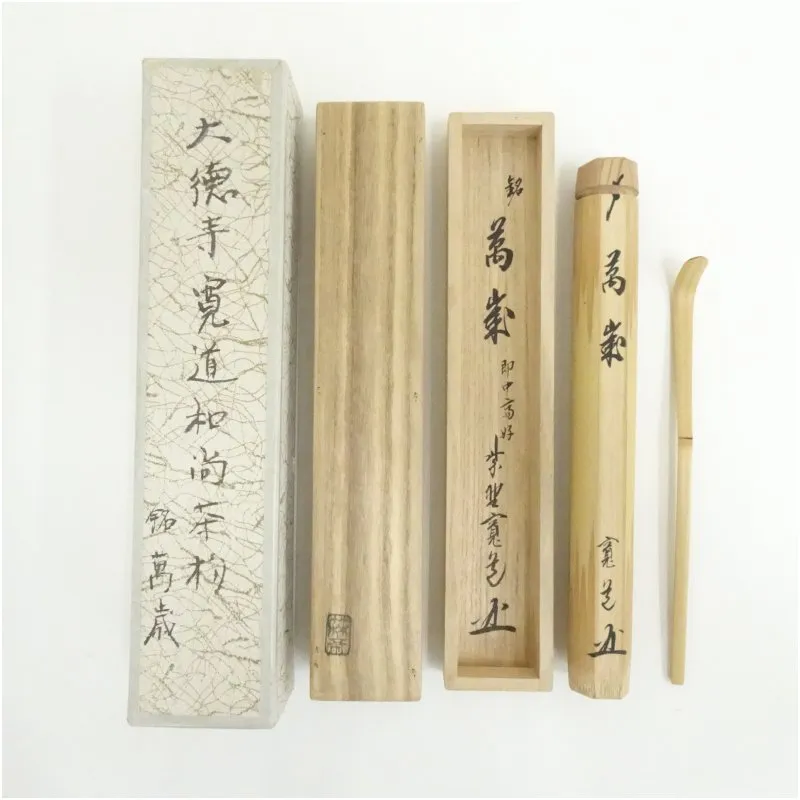 大徳寺寛道和尚茶杓
銘萬歳
銘
萬歳
即中斎好
紫野寛道
〆
萬歳
寛道